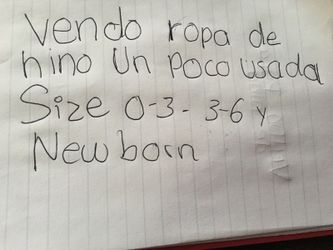 Vendo ropa de
nino Un Poco usada
Size 0-3 - 3-6 y
New born